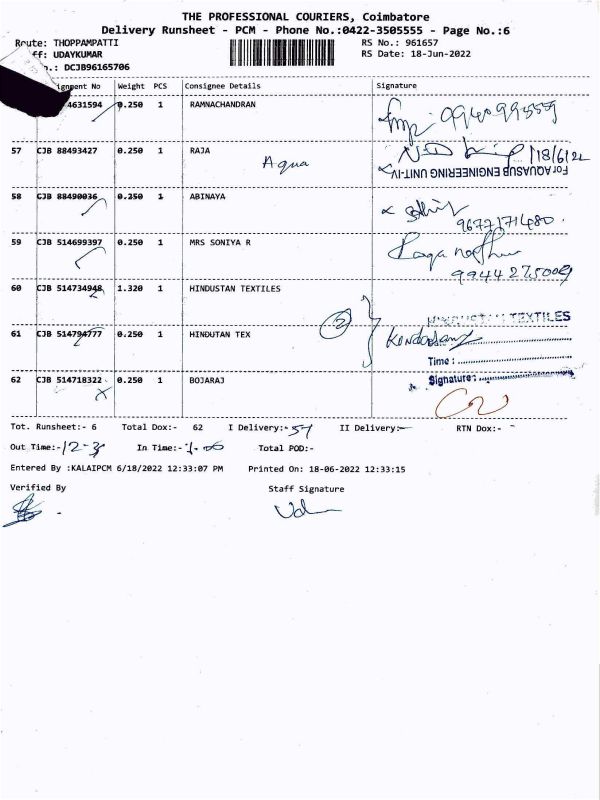 THE PROFESSIONAL COURIERS, Coimbatore
Delivery Runsheet - PCM - Phone No.:0422-3505555 - Page No.:6
Route: THOPPAMPATTI
RS No.: 961657
ff: UDAYKUMAR
RS Date: 18-Jun-2022
.: DCJB96165706
ignment No Weight PCS Consignee Details Signature
4631594 0.250 1 RAMNACHANDRAN
9940995559
57 CJB 88493427 0.250 1 RAJA
Aqua
18/6/22
For AQUASUB ENGINEERING UNIT-IV
58 CJB 88490036 0.250 1 ABINAYA
9677171480
59 CJB 514699397 0.250 1 MRS SONIYA R
9944275009
60 CJB 514734948 1.320 1 HINDUSTAN TEXTILES
2
HINDUSTAN TEXTILES
61 CJB 514794777 0.250 1 HINDUTAN TEX
Time :
62 CJB 514718322 0.250 1 BOJARAJ
Signature:
Tot. Runsheet:- 6 Total Dox:- 62 I Delivery:- 57 II Delivery:- RTN Dox:-
Out Time:- In Time:- Total POD:-
Entered By :KALAIPCM 6/18/2022 12:33:07 PM Printed On: 18-06-2022 12:33:15
Verified By Staff Signature